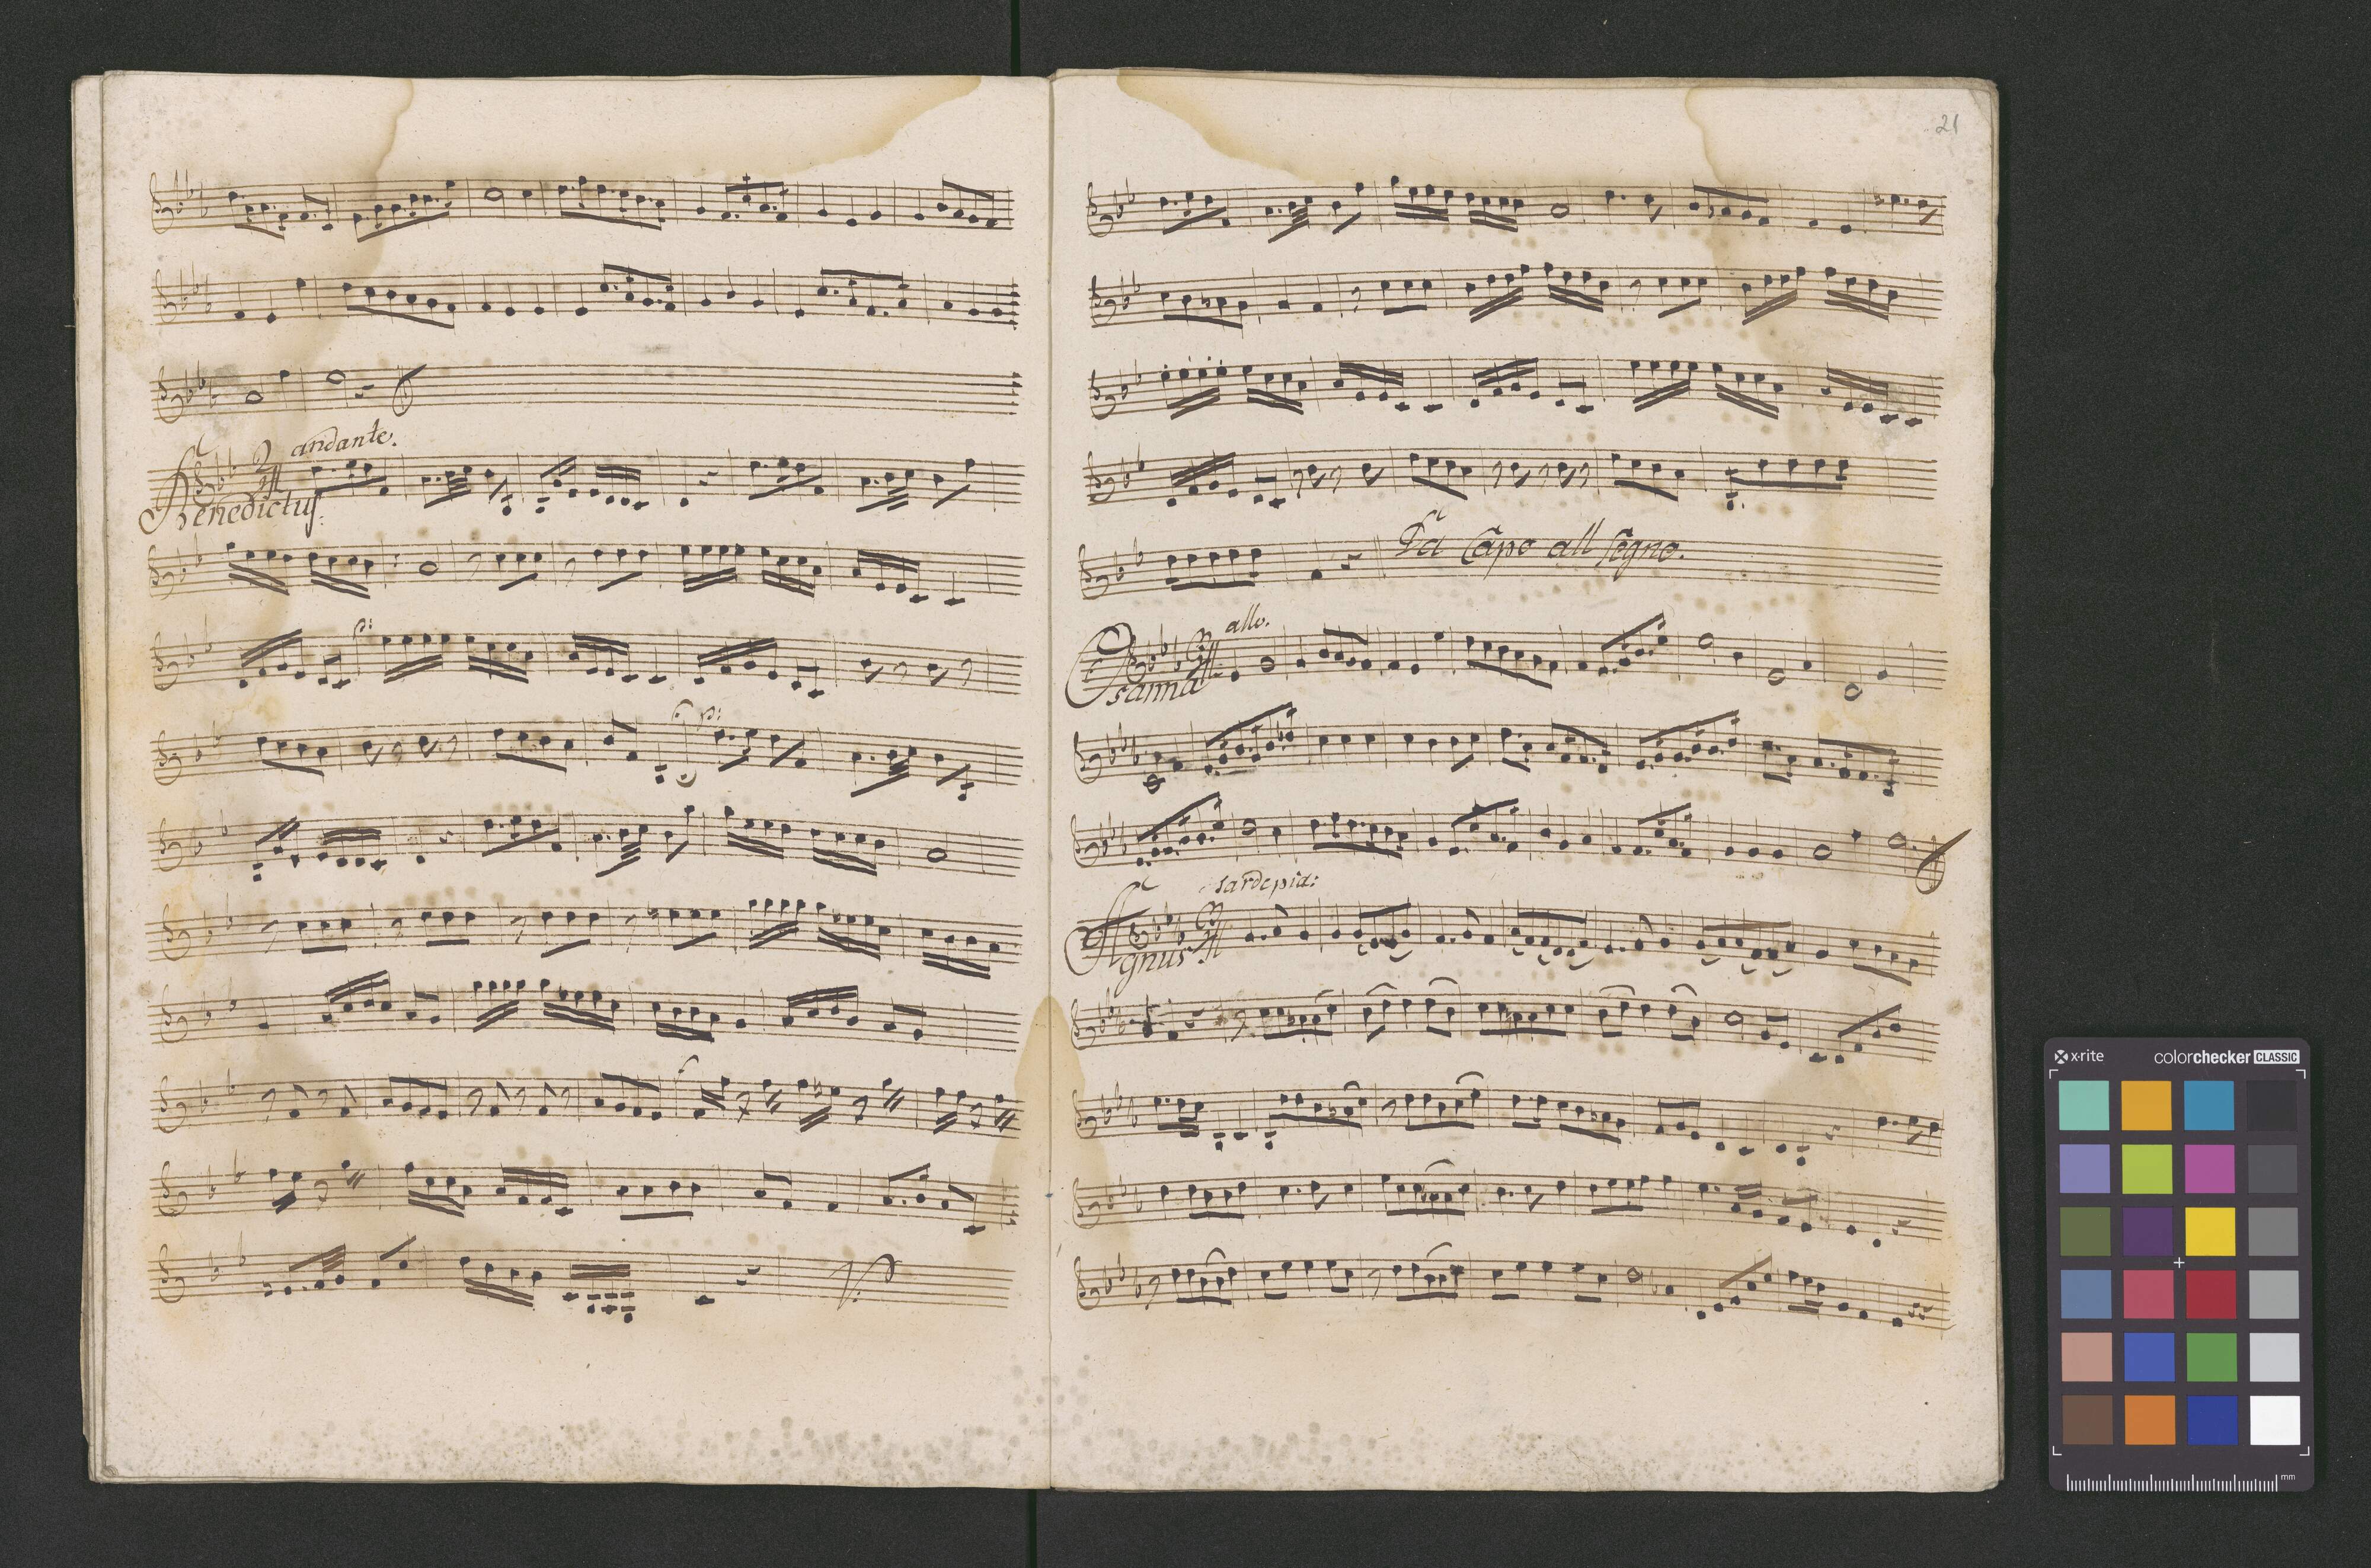 andante.
Benedictus.
p:
p:
21
Da Capo all Segno.
allo.
Osanna
Agnus
x-rite
colorchecker CLASSIC
mm